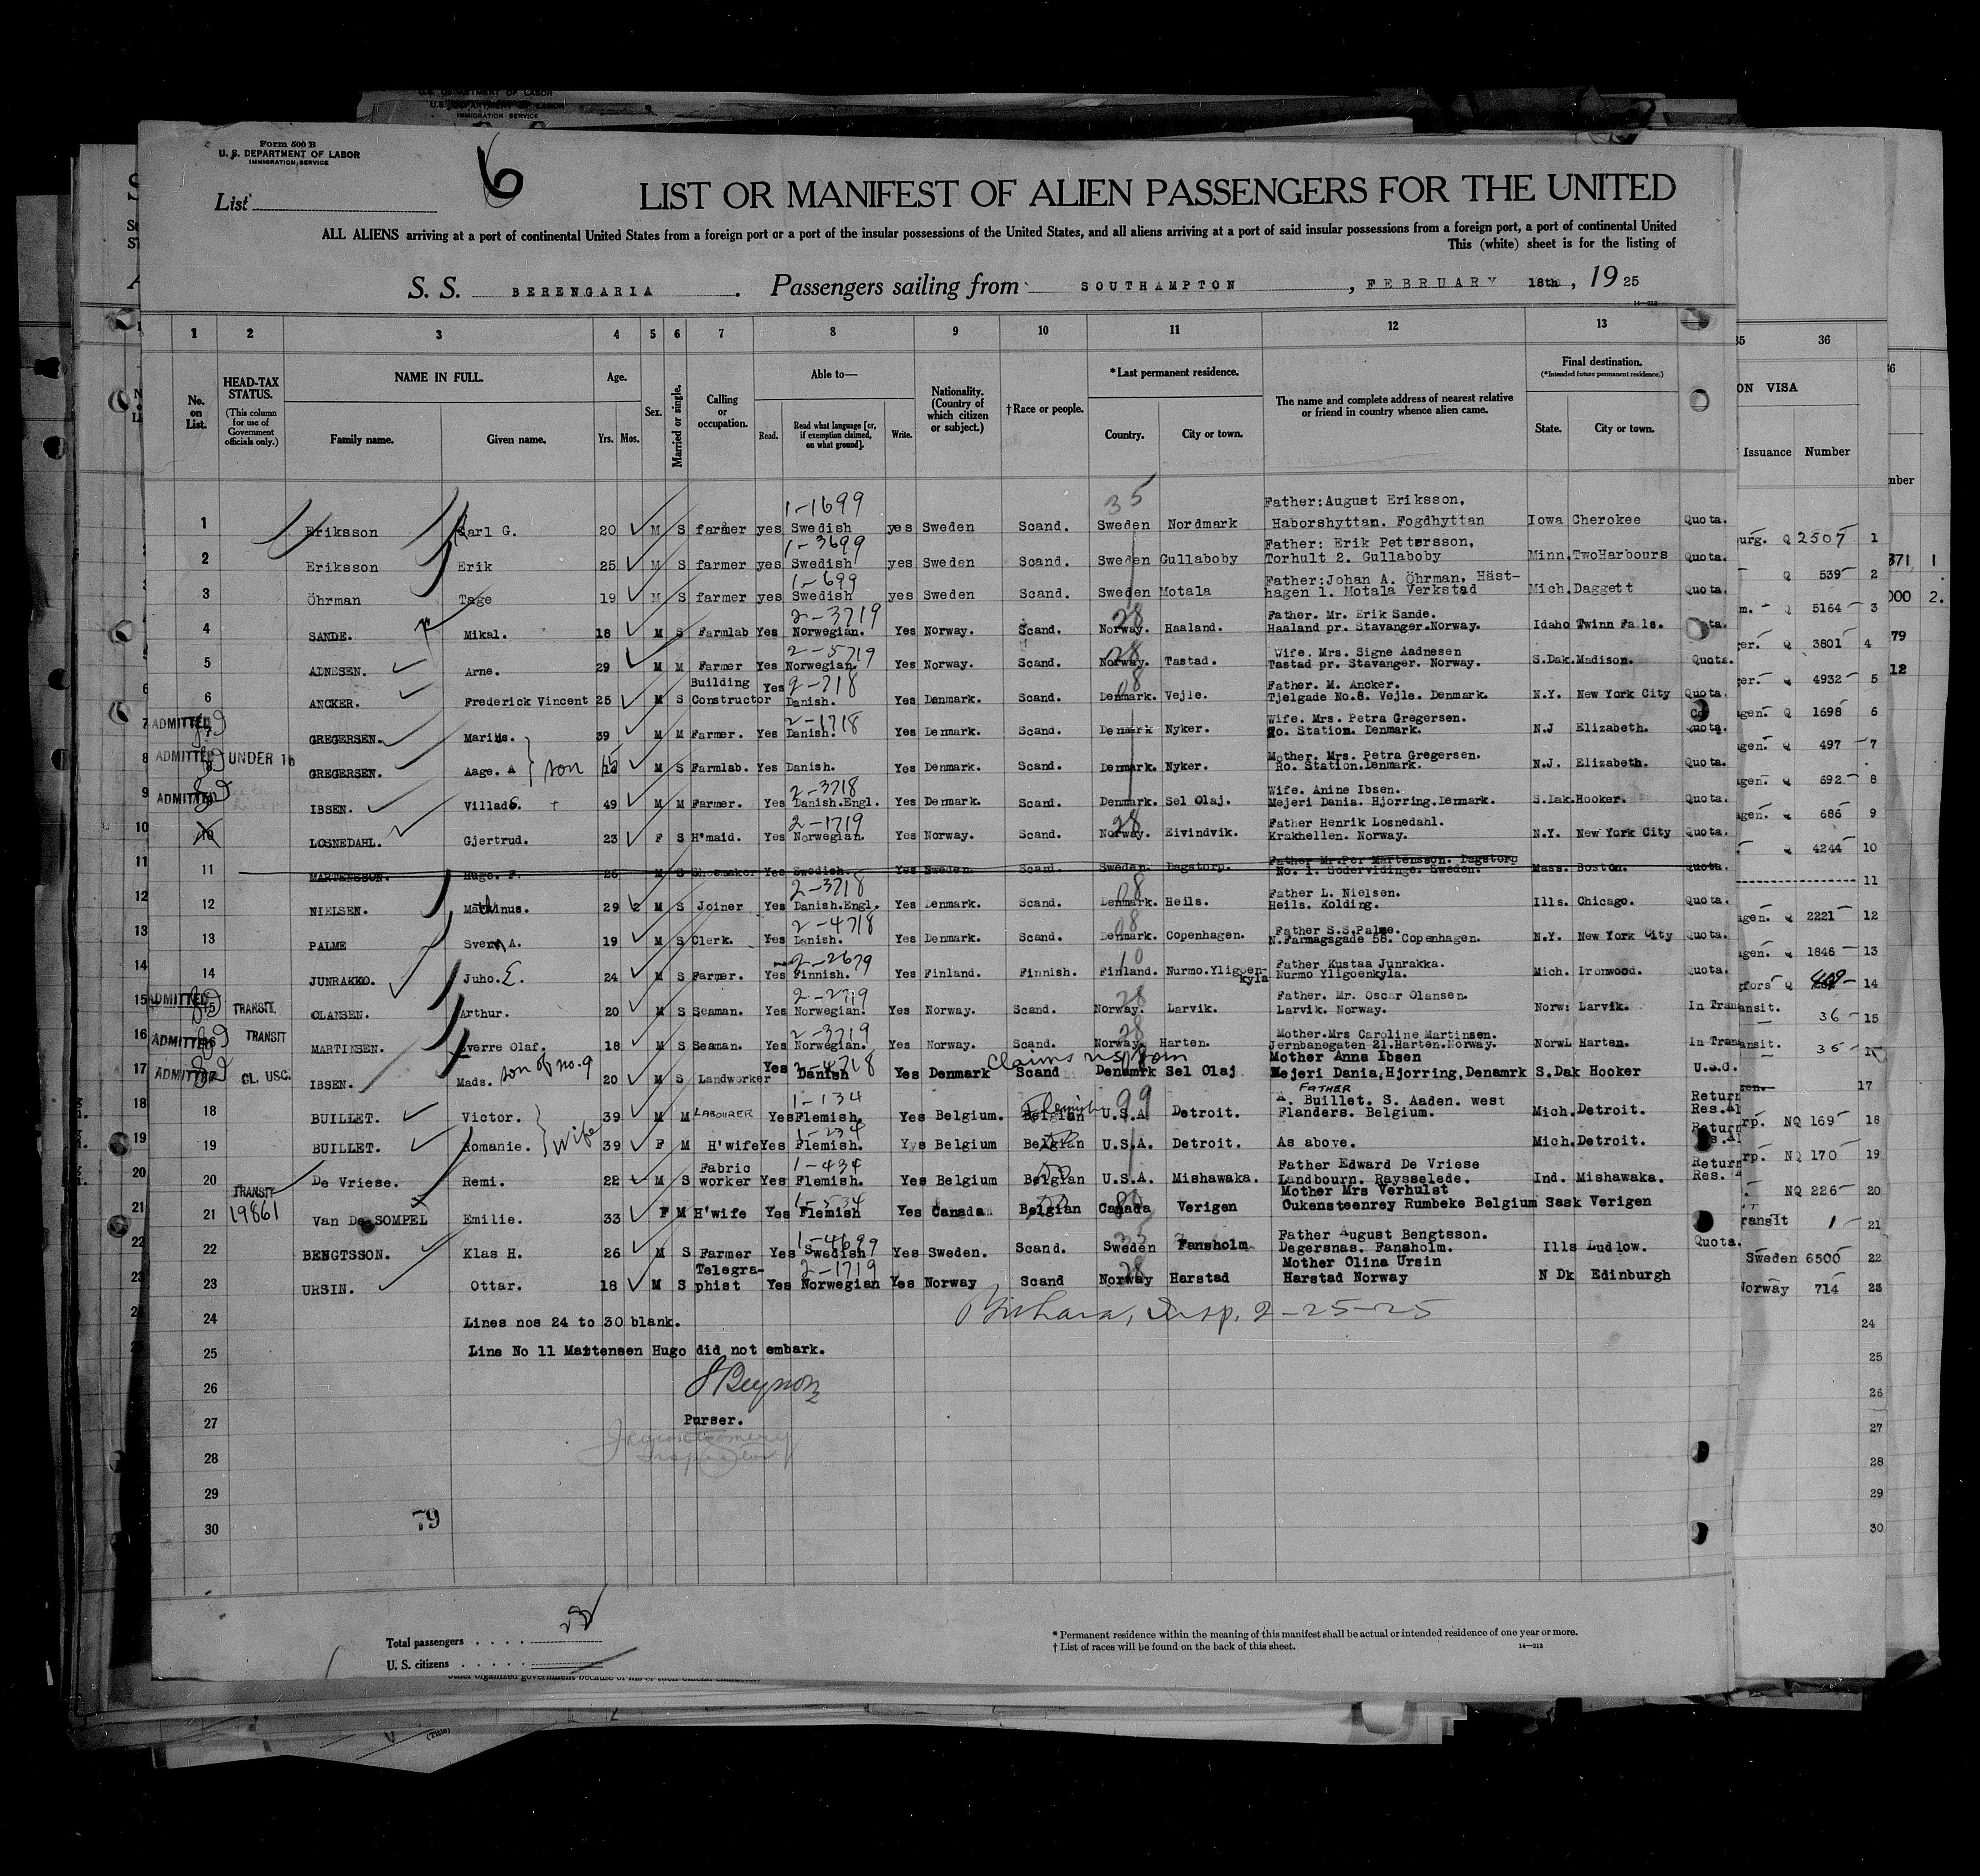 U.S. DEPARTMENT OF LABOR
IMMIGRATION SERVICE
Form 500 B
U. S. DEPARTMENT OF LABOR
IMMIGRATION SERVICE
6
List
LIST OR MANIFEST OF ALIEN PASSENGERS FOR THE UNITED
ALL ALIENS arriving at a port of continental United States from a foreign port or a port of the insular possessions of the United States, and all aliens arriving at a port of said insular possessions from a foreign port, a port of continental United
This (white) sheet is for the listing of
S. S. BERENGARIA. Passengers sailing from SOUTHAMPTON, FEBRUARY 18th, 1925
14—213
1 2 3 4 5 6 7 8 9 10 11 12 13
No. on List. HEAD-TAX STATUS. (This column for use of Government officials only.) NAME IN FULL. Family name. Given name. Age. Yrs. Mos. Sex. Married or single. Calling or occupation. Able to— Read. Read what language [or, if exemption claimed, on what ground]. Write. Nationality. (Country of which citizen or subject.) †Race or people. *Last permanent residence. Country. City or town. The name and complete address of nearest relative or friend in country whence alien came. Final destination. (*Intended future permanent residence.) State. City or town.
35 36
ON VISA
Issuance Number
1 Eriksson Carl G. 20 M S farmer yes 1-1699 Swedish yes Sweden Scand. 35 Sweden Nordmark Father:August Eriksson, Haborshyttan. Fogdhyttan Iowa Cherokee Quota. Q 2507 1
2 Eriksson Erik 25 M S farmer yes 1-3699 Swedish yes Sweden Scand. Sweden Gullaboby Father: Erik Pettersson, Torhult 2. Gullaboby Minn. TwoHarbours Quota. Q 539 2
3 Öhrman Tage 19 M S farmer yes 1-699 Swedish yes Sweden Scand. Sweden Motala Father:Johan A. Öhrman, Häst- hagen 1. Motala Verkstad Mich. Daggett Quota. Q 5164 3
4 SANDE. Mikal. 18 M S Farmlab Yes 2-3719 Norwegian. Yes Norway. Scand. 28 Norway. Haaland. Father. Mr. Erik Sande. Haaland pr. Stavanger.Norway. Idaho Twinn Falls. Q 3801 4
5 ADNESEN. Arne. 29 M M Farmer Yes 2-5719 Norwegian. Yes Norway. Scand. 28 Norway. Tastad. Wife. Mrs. Signe Aadnesen Tastad pr. Stavanger. Norway. S.Dak. Madison. Quota. 4932 5
6 ANCKER. Frederick Vincent 25 M S Building Constructor Yes 2-718 Danish. Yes Denmark. Scand. 08 Denmark. Vejle. Father. M. Ancker. Tjelgade No.8. Vejle. Denmark. N.Y. New York City Quota. Q 1698 6
7 ADMITTED GREGERSEN. Marius. 39 M M Farmer. Yes 2-1718 Danish. Yes Denmark. Scand. Denmark Nyker. Wife. Mrs. Petra Gregersen. Ro. Station. Denmark. N.J Elizabeth. Quota. 497 7
8 ADMITTED UNDER 16 GREGERSEN. Aage. A son 15 M S Farmlab. Yes Danish. Yes Denmark. Scand. Denmark. Nyker. Mother. Mrs. Petra Gregersen. Ro. Station.Denmark. N.J. Elizabeth. Quota. 692 8
9 ADMITTED IBSEN. Villads. 49 M M Farmer. Yes 2-3718 Danish.Engl. Yes Denmark. Scand. Denmark. Sel Olaj. Wife. Anine Ibsen. Mejeri Dania. Hjorring.Denmark. S.Dak. Hooker. Quota. 686 9
10 LOSNEDAHL. Gjertrud. 23 F S H'maid. Yes 2-1719 Norwegian. Yes Norway. Scand. 28 Norway. Eivindvik. Father Henrik Losnedahl. Krakhellen. Norway. N.Y. New York City Quota. 4244 10
11 MARTENSSON. Hugo. F. 26 M S Shoemaker Yes Swedish. Yes Sweden. Scand. Sweden. Dagstorp. Father Mr.Per Martensson. Dagstorp No. 1. Sodervidinge. Sweden. Mass. Boston. Quota. 11
12 NIELSEN. Mathinus. 29 2 M S Joiner Yes 2-3718 Danish.Engl. Yes Denmark. Scand. 08 Denmark. Heils. Father L. Nielsen. Heils. Kolding. Ills. Chicago. Quota. Q 2221 12
13 PALME Sven A. 19 M S Clerk. Yes 2-4718 Danish. Yes Denmark. Scand. 08 Denmark. Copenhagen. Father S.S.Palme. N.Farmagsgade 58. Copenhagen. N.Y. New York City Quota. Q 1846 13
14 JUNRAKKO. Juho. E. 24 M S Farmer. Yes 2-2679 Finnish. Yes Finland. Finnish. 10 Finland. Nurmo.Yligoen- kyla Father Kustaa Junrakka. Nurmo Yligoenkyla. Mich. Ironwood. Quota. 14
15 ADMITTED TRANSIT. OLANSEN. Arthur. 20 M S Seaman. Yes 2-2719 Norwegian. Yes Norway. Scand. 28 Norway. Larvik. Father. Mr. Oscar Olansen. Larvik. Norway. Norw: Larvik. In Transit. 36 15
16 ADMITTED TRANSIT MARTINSEN. Sverre Olaf. 18 M S Seaman. Yes 2-3719 Norwegian. Yes Norway. Scand. 28 Norway. Harten. Mother.Mrs Caroline Martinsen. Jernbanegaten 21.Harten.Norway. NorwL Harten. In Transit. 35
17 ADMITTED CL. USC. IBSEN. Mads. son of no. 9 20 M S Landworker Yes 2-4718 Danish Yes Denmark Claims US born Scand Denamrk Sel Olaj Mother Anna Ibsen Mejeri Dania,Hjorring,Denamrk S.Dak Hooker U.S.C. 17
18 BUILLET. Victor. 39 M M LABOURER Yes 1-134 Flemish. Yes Belgium. Flemish Belgian 99 U.S.A Detroit. FATHER A. Buillet. S. Aaden. west Flanders. Belgium. Mich. Detroit. Return Res.Al NQ 169 18
19 BUILLET. Romanie. Wife 39 F M H'wife Yes 1-234 Flemish. Yys Belgium Belgian U.S.A. Detroit. As above. Mich. Detroit. Return NQ 170 19
20 De Vriese. Remi. 22 M S Fabric worker Yes 1-434 Flemish. Yes Belgium Belgian U.S.A. Mishawaka. Father Edward De Vriese Landbourn. Raysselede. Ind. Mishawaka. Return Res. NQ 226 20
21 TRANSIT 19861 Van De SOMPEL Emilie. 33 F M H'wife Yes 1-534 Flemish Yes Canada Belgian Canada Verigen Mother Mrs Verhulst Oukensteenrey Rumbeke Belgium Sask Verigen 1 21
22 BENGTSSON. Klas H. 26 M S Farmer Yes 1-4699 Swedish Yes Sweden. Scand. 35 Sweden Fansholm Father August Bengtsson. Degersnas. Fansholm. Ills Ludlow. Quota. Sweden 6500 22
23 URSIN. Ottar. 18 M S Telegra- phist Yes 2-1719 Norwegian Yes Norway Scand 28 Norway Harstad Mother Olina Ursin Harstad Norway N Dk Edinburgh Norway 714 23
24 Lines nos 24 to 30 blank. Insp. 2-25-25 24
25 Line No 11 Mattensen Hugo did not embark. 25
26 26
27 Purser. 27
28 28
29 29
30 79 30
Total passengers
U. S. citizens
* Permanent residence within the meaning of this manifest shall be actual or intended residence of one year or more.
† List of races will be found on the back of this sheet. 14—213
(Title)